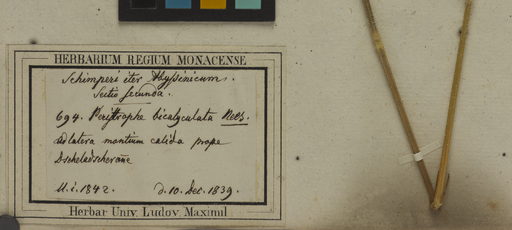 HERBARIUM REGIUM MONACENSE
Schimperi iter Abyssinicum.
Sectio secunda.
694. Peristrophe bicalyculata Nees.
Ad latera montium calida prope
Dscheladscheranne
U. i. 1842. d. 10. Dec. 1839.
Herbar Univ. Ludov. Maximil